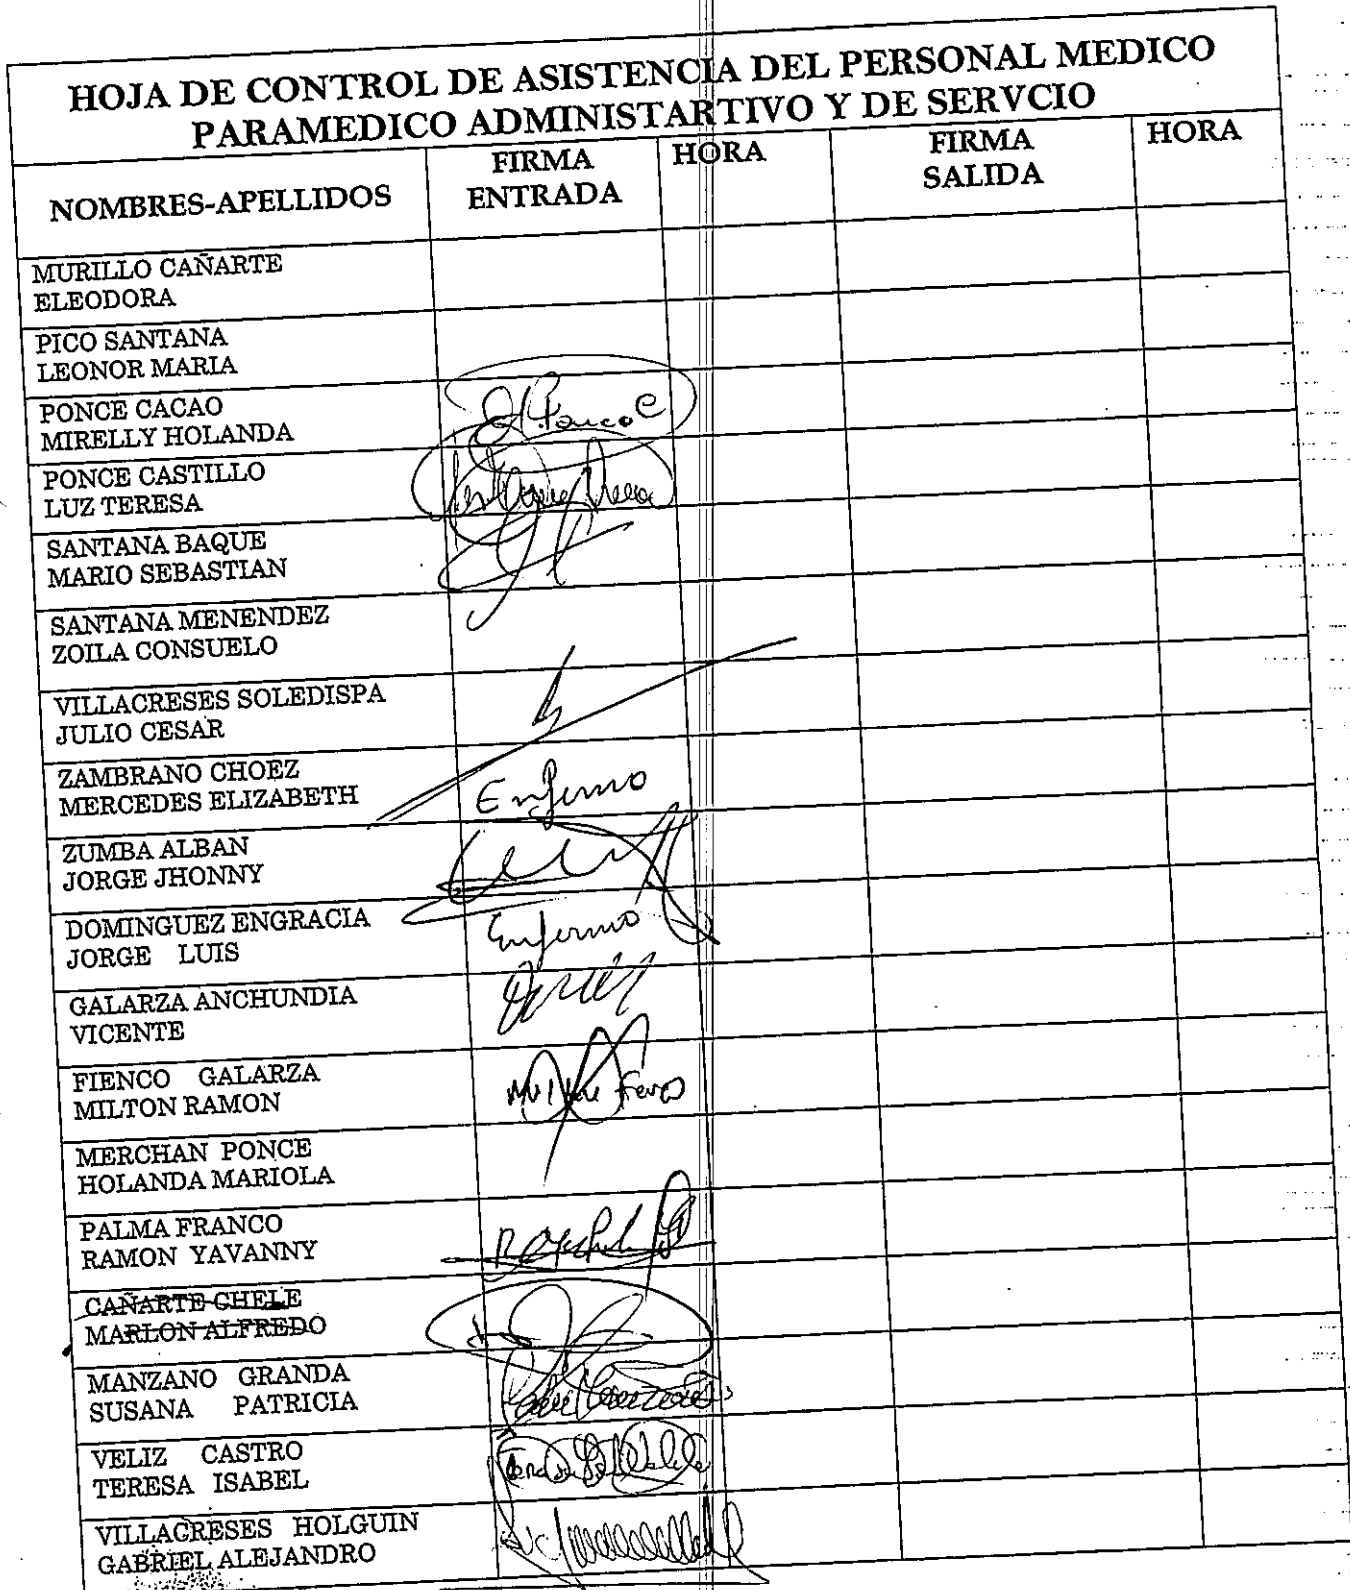 HOJA DE CONTROL DE ASISTENCIA DEL PERSONAL MEDICO
PARAMEDICO ADMINISTARTIVO Y DE SERVCIO
NOMBRES-APELLIDOS
FIRMA
ENTRADA
HORA
FIRMA
SALIDA
HORA
MURILLO CAÑARTE
ELEODORA
PICO SANTANA
LEONOR MARIA
PONCE CACAO
MIRELLY HOLANDA
PONCE CASTILLO
LUZ TERESA
SANTANA BAQUE
MARIO SEBASTIAN
SANTANA MENENDEZ
ZOILA CONSUELO
VILLACRESES SOLEDISPA
JULIO CESAR
ZAMBRANO CHOEZ
MERCEDES ELIZABETH
Enfermo
ZUMBA ALBAN
JORGE JHONNY
DOMINGUEZ ENGRACIA
JORGE LUIS
Enfermo
GALARZA ANCHUNDIA
VICENTE
FIENCO GALARZA
MILTON RAMON
MERCHAN PONCE
HOLANDA MARIOLA
PALMA FRANCO
RAMON YAVANNY
CAÑARTE CHELE
MARLON ALFREDO
MANZANO GRANDA
SUSANA PATRICIA
VELIZ CASTRO
TERESA ISABEL
VILLACRESES HOLGUIN
GABRIEL ALEJANDRO